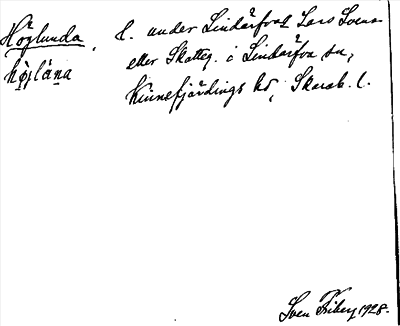 Höglunda, l. under Lindärfva Lars Svens-
eller Skatteg. i Lindärfva sn,
höjlåna
Kinnefjärdings hd, Skarab. l.
Sven Friberg 1928.